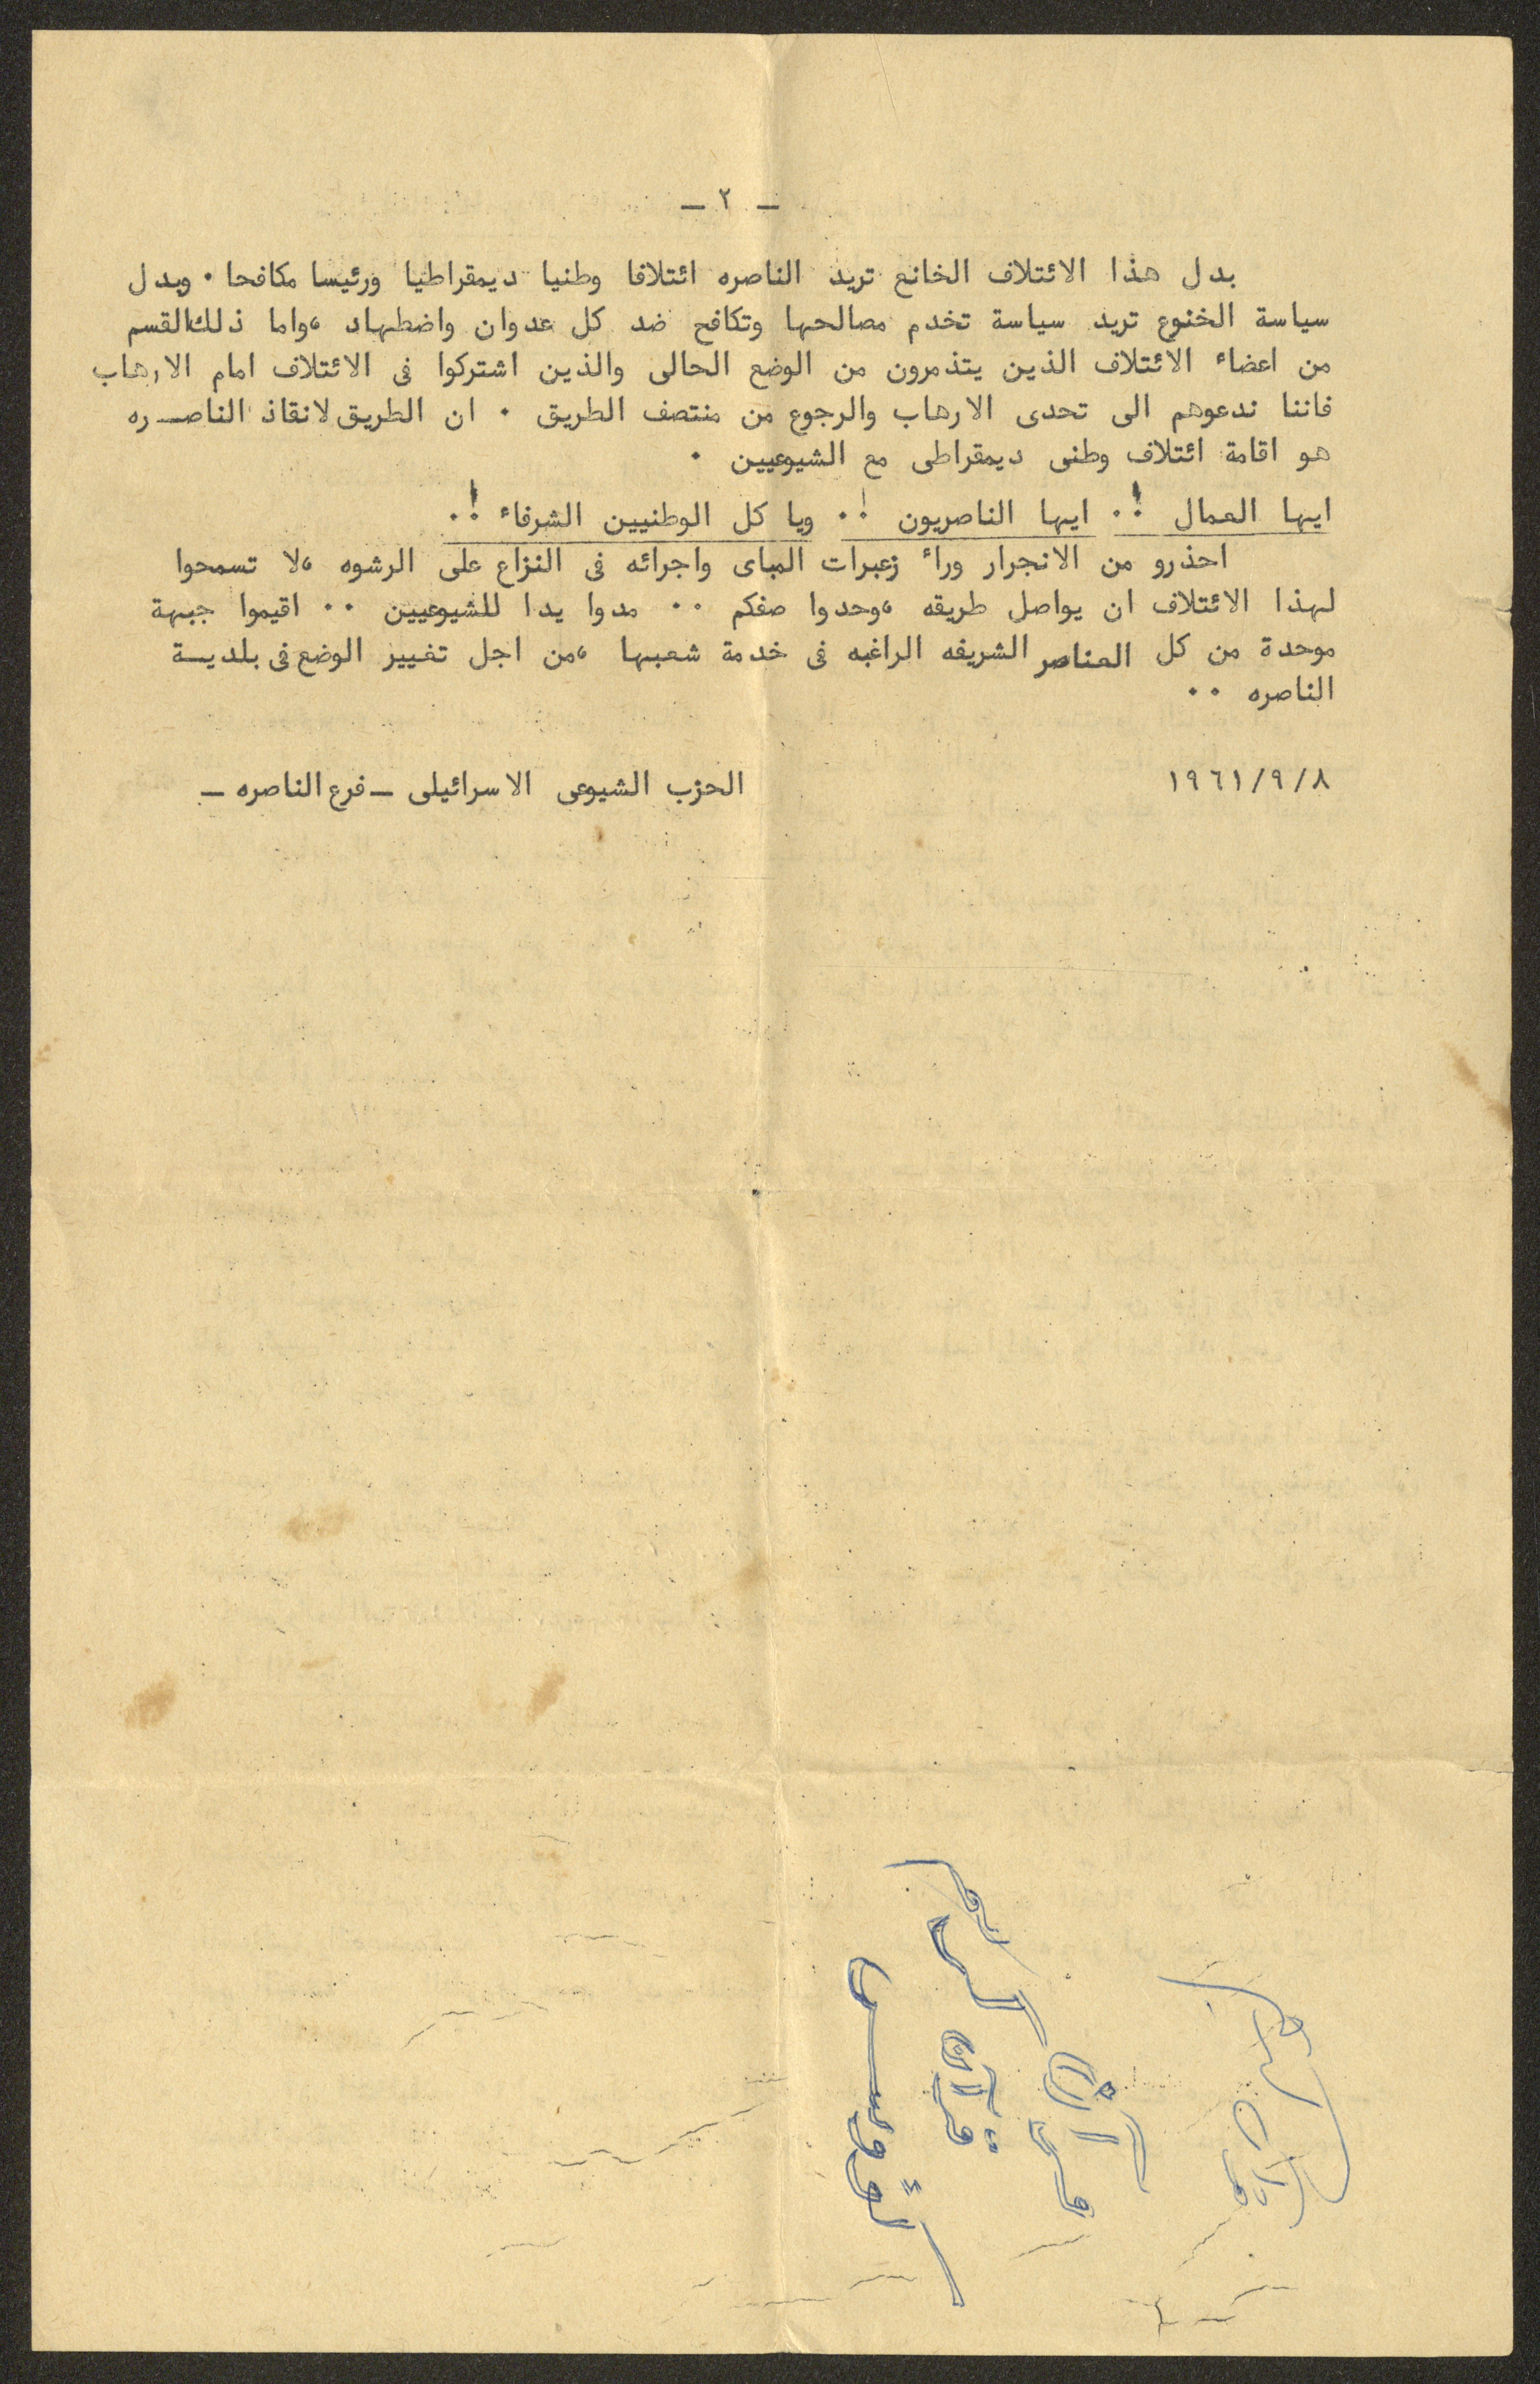 - ٢ -
بدل هذا الائتلاف الخانع تريد الناصره ائتلافا وطنيا ديمقراطيا ورئيسا مكافحا ٠ وبدل
سياسة الخنوع تريد سياسة تخدم مصالحها وتكافح ضد كل عدوان واضطهاد ،واما ذلك القسم
من اعضاء الائتلاف الذين يتذمرون من الوضع الحالى والذين اشتركوا فى الائتلاف امام الارهاب
فاننا ندعوهم الى تحدى الارهاب والرجوع من منتصف الطريق ٠ ان الطريق لانقاذ الناصـره
هو اقامة ائتلاف وطنى ديمقراطى مع الشيوعيين ٠
ايها العمال !٠٠ ايها الناصريون !٠٠ ويا كل الوطنيين الشرفاء !٠٠
احذرو من الانجرار وراء زعبرات المباى واجرائه فى النزاع على الرشوه ،لا تسمحوا
لهذا الائتلاف ان يواصل طريقه ،وحدوا صفكم ٠٠ مدوا يدا للشيوعيين ٠٠ اقيموا جبهة
موحدة من كل العناصر الشريفه الراغبه فى خدمة شعبها ،من اجل تغيير الوضع فى بلديـة
الناصره ٠٠
١٩٦١/٩/٨ الحزب الشيوعى الاسرائيلى - فرع الناصره -